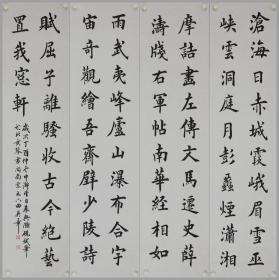 滄海日赤城霞峨眉雪巫
峽雲洞庭月彭蠡煙瀟湘
摩詰畫左傳文馬遷史薛
濤牋右軍帖南華經相如
雨武夷峰廬山瀑布合宇
宙奇觀繪吾齋壁少陵詩
賦屈子離騷收古今絕藝
置我窓軒
歲次丁酉仲冬